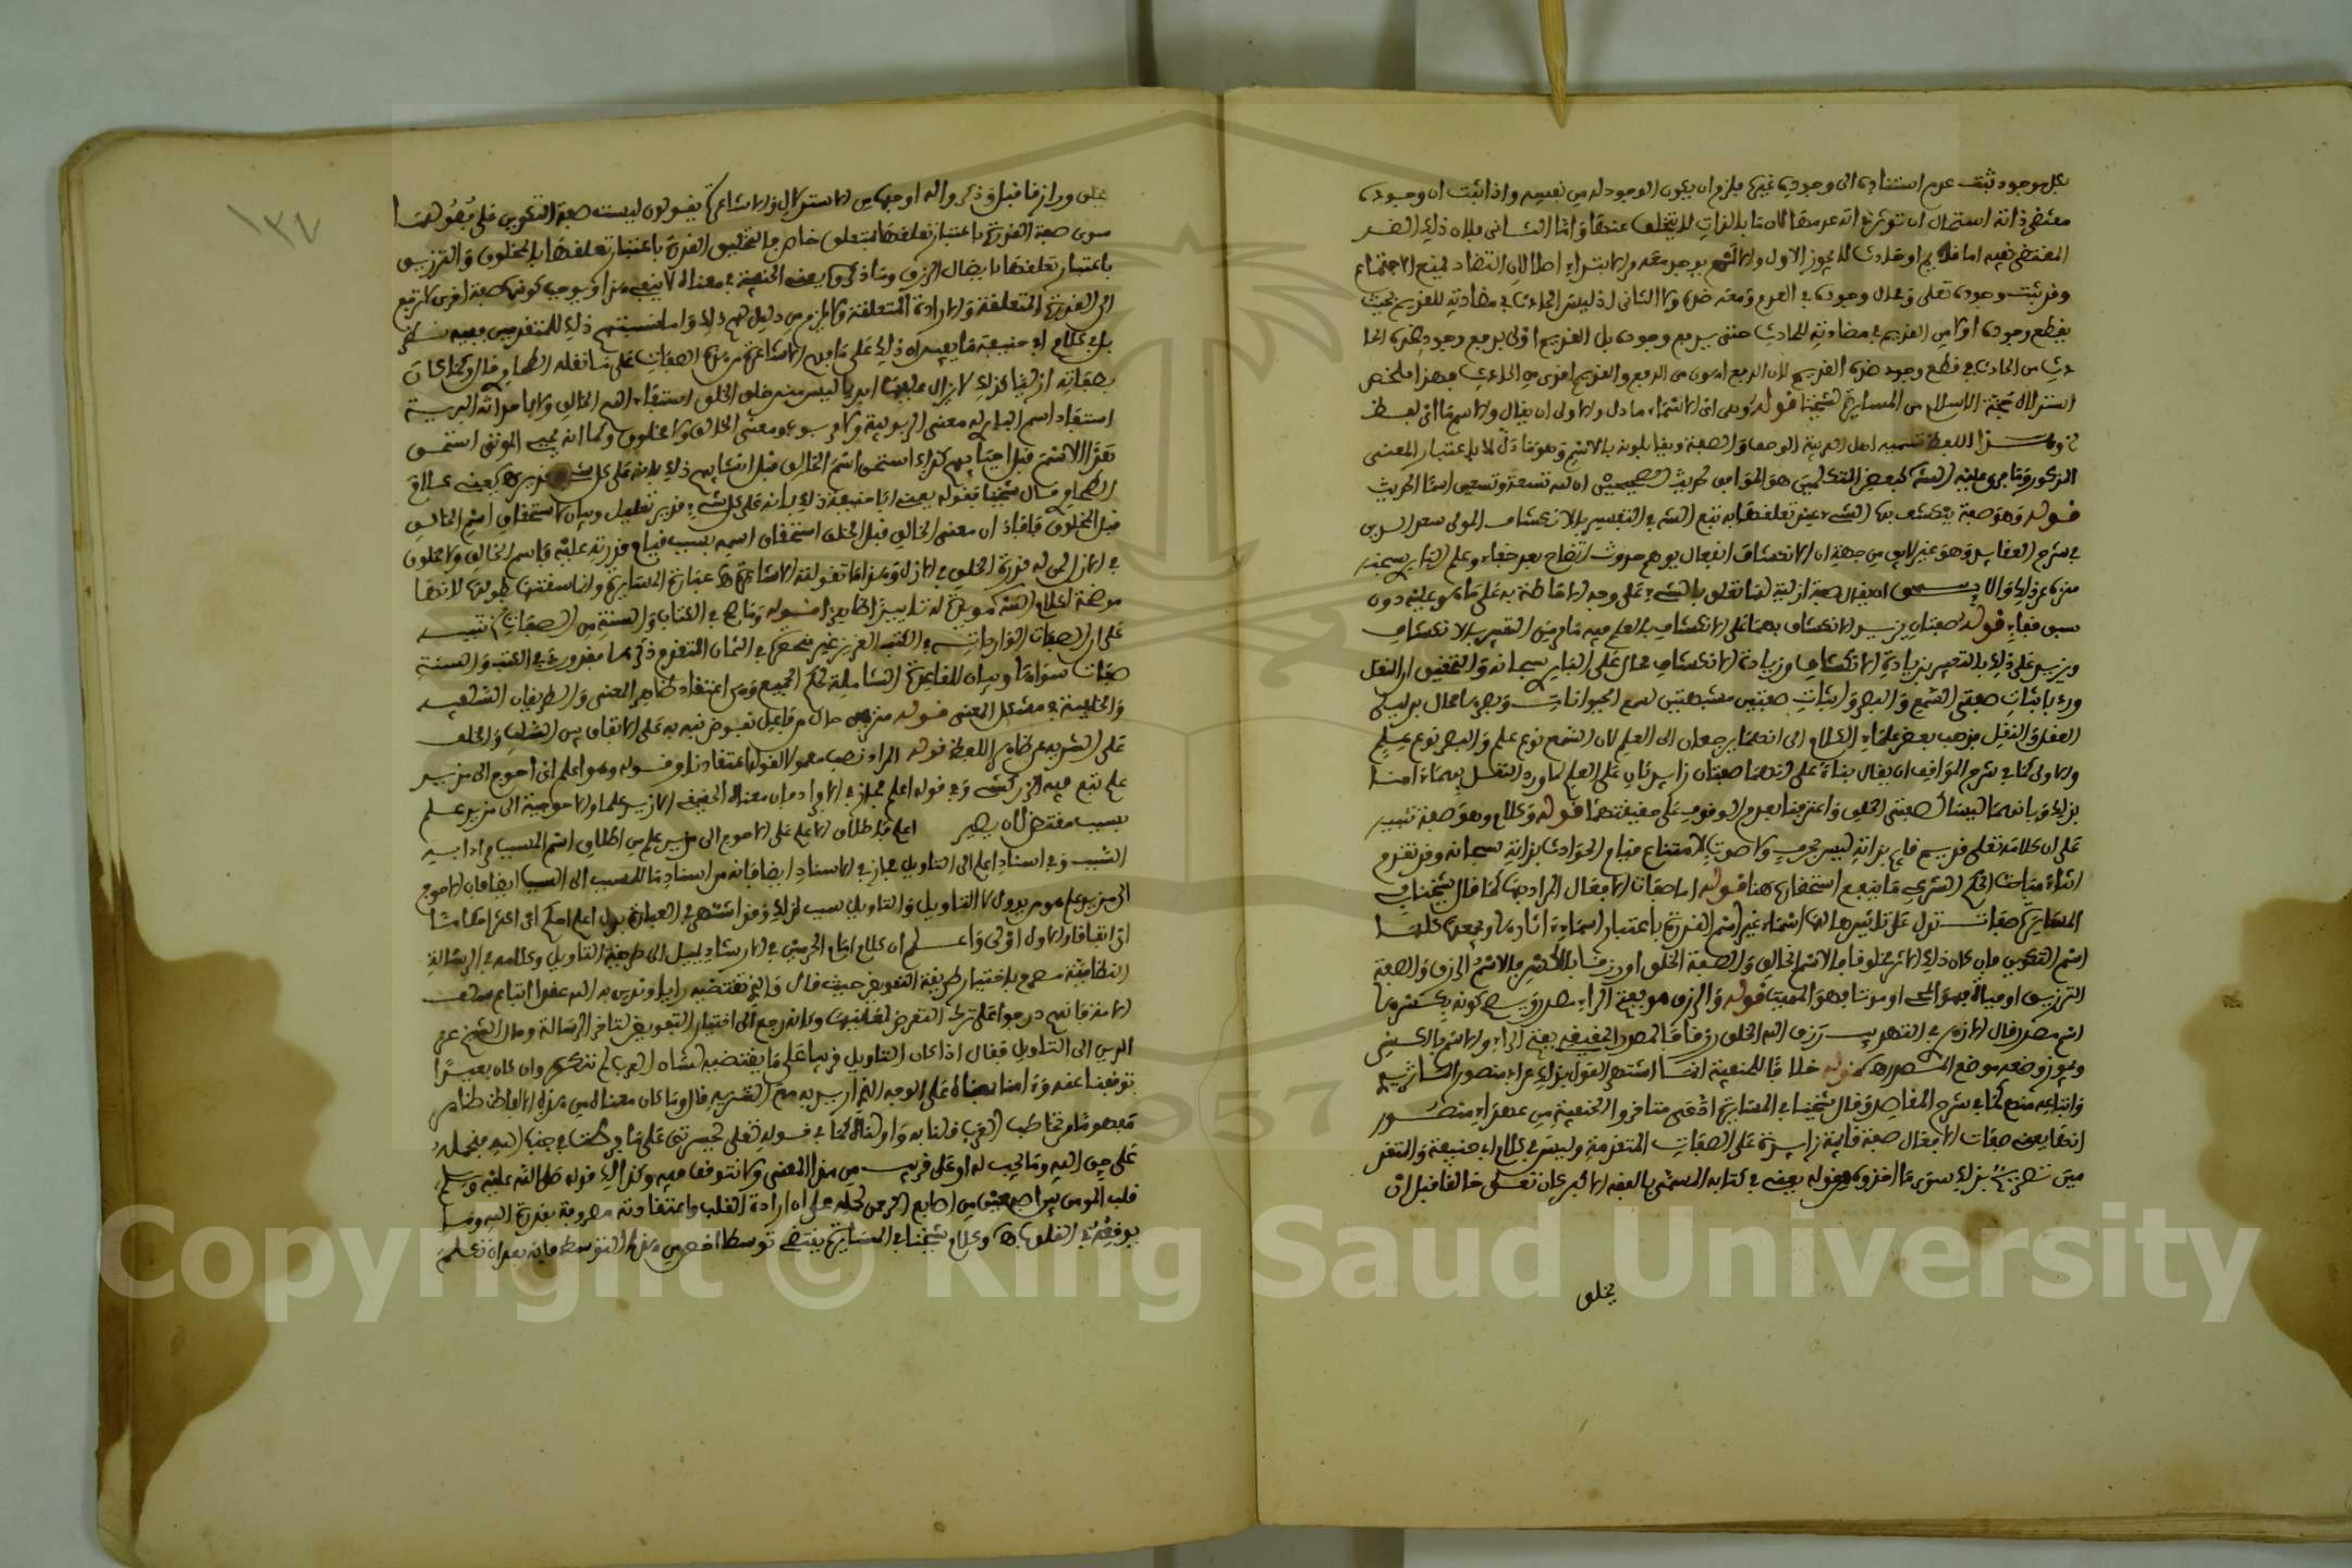 بكل موجود ثبت عدم استناده الى وجود غيره فلزم ان يكون الوجود له من نفسه واذا ثبت ان وجوده
مقتضى ذاته استحال ان تؤثر ذاته عدمها لان ما بالذات لا يتخلف عنها واما الثانى فلان ذلك الضد
المقتضى نفيه اما قديم او حادث لا يجوز الاول والا لم يوجد معه من الابتداء اطلاق لان التضاد يمنع الاجتماع
وقد ثبت وجوده تعلى ومحال وجوده فى القدم ومعه ضده ولا الثانى اذ ليس الحادث فى مضادته للقديم بحيث
يقطع وجوده اولى من القديم فى مضادته للحادث حتى يدفع وجوده بل القديم اولى بدفع وجود ضده الحا
دث من الحادث فى قطع وجود ضده القديم لان الدفع اهون من الرفع والقديم اقوى من الحادث فهذا ملخص
استدلال حجة الاسلام من المسايرة لشيخنا قوله وهى اى الاسماء ما دل والاولى ان يقال والاسم اى لفظ
اللفظ تسميه اهل العربية الوصف والصفة ويقابلونه بالاسم وهو ما دل لا باعتبار المعنى
المذكور وما جرى عليه الشارح كبعض المتكلمين هو الموافق لحديث الصحيحين ان لله تسعة وتسعين اسما الحديث
قوله وهو صفة ينكشف بها الشىء عند تعلقها به تبع الشارح فى التفسير بالانكشاف المولى سعد الدين
فى شرح العقايد وهو غير لايق من جهة ان الانكشاف انفعال يوهم حدوث اتضاح بعد خفاء وعلم البارى سبحنه
منزه عن ذلك والا ان يقال صفة ازلية لها تعلق بالشىء على وجه الاحاطة به على ما هو عليه دون
سبق خفاء قوله صفتان يزيد الانكشاف بهما على الانكشاف بالعلم فيه ما مر من التعبير بالانكشاف
ويزيد على ذلك بالتعبير بزيادة الانكشاف وزيادة الانكشاف محال على البارى سبحانه والتحقيق ان النقل
ورد باثبات صفتى السمع والبصر واثبات صفتين مشبهتين لسمع الحيوانات وبصرها محال بدليل
العقل والنقل فذهب بعض علماء الكلام الى انهما يرجعان الى العلم لان السمع نوع علم والبصر نوع علم
والاولى كما فى شرح المواقف ان يقال بناء على انهما صفتان زايدتان على العلم لما ورد النقل بهما امنا
بذلك وبانهما ليستا كصفتى الخلق واعترفنا بعدم الوقوف على حقيقتهما قوله وكلام وهو صفة تنبيه
على ان كلامه تعلى قديم قايم بذاته ليس بحرف ولا صوت لامتناع قيام الحوادث بذاته سبحانه وقد تقدم
اثناء مباحث الحكم الشرعى ما ينبغى استحضاره هنا قوله اما صفات الافعال المراد بها كما قال شيخنا فى
المسايرة صفات تدل على تاثير ها لها اسماء غير اسم القدرة باعتبار اسماء اثارها ويجمعها كلها
اسم التكوين فان كان ذلك الاثر مخلوقا فالاسم الخالق والصفة الخلق او رزقا بالكسر فالاسم الرازق والصفة
الترزيق او حياة فهو المحيى او موتا فهو المميت قوله والرزق هو بفتح الراء مصدر ويسع كونه بكسرها
اسم مصدر قال الازهرى فى التهذيب رزق الله الخلق رزقا فالمصدر الحقيقى بفتح الراء والاسم بالكسر
ويجوز وضعه موضع المصدر اه قوله خلافا للحنفية انما اشتهر القول بذلك عن ابى منصور الماتريدى
واتباعه منهم كما فى شرح المقاصد وقال شيخنا فى المسايرة ادعى متاخروا الحنفية من عهد ابى منصور
انها يعنى صفات الافعال صفة قايمة زايدة على الصفات المتقدمة وليس فى كلام ابى حنيفة والمتقد
مين تصريح بذلك سوى ما اخذوه من قوله يعنى فى كتابه المسمى بالفقه الاكبر كان تعلى خالقا قبل ان
يخلق
١٣٧
يخلق ورازقا قبل وذكروا له اوجها من الاستدلال والاشاعرة يقولون ليست صفة التكوين على فصولها
سوى صفة القدرة باعتبار تعلقها بمتعلق خاص فالتخليق القدرة باعتبار تعلقها بالمخلوق والترزيق
باعتبار تعلقها بايصال الرزق وما ذكروه يعنى الحنفية فى معناه لا ينفى هذا ويوجب كونها صفة اخرى لا ترجع
الى القدرة المتعلقة والارادة المتعلقة ولا يلزم من دليل لهم ذلك واما نسبتهم ذلك للمتقدمين ففيه نظر
بل فى كلام ابى حنيفة ما يفيد ان ذلك على ما فهم الاشاعرة من هذه الصفات على ما نقله الطحاوى قال وكما كان
بصفاته ازليا كذلك لا يزال عليها ابديا ليس منذ خلق الخلق استفاد اسم الخالق ولا باحداثه البرية
استفاد اسم البارى له معنى الربوبية ولا مربوب ومعنى الخالق ولا مخلوق وكما انه يحيى الموتى استحق
هذا الاسم قبل احيايهم كذلك استحق اسم الخالق قبل انشايهم ذلك بانه على كل شىء قدير اه يعنى كلام
الطحاوى قال شيخنا فقوله يعنى ابا حنيفة ذلك بانه على كل شىء قدير تعليل وبيان لاستحقاق اسم الخالق
قبل المخلوق فافاد ان معنى الخالق قبل الخلق استحقاق اسمه بسبب قيام قدرته عليه فاسم الخالق ولا مخلوق
فى الازل لمن له قدرة الخلق فى الازل وهذا ما تقوله الاشاعرة اه عبارة المسايرة وانما سقتها بطولها لانها
موضحة لكلام الشارح مويدة له تاييدا ظاهرا قوله وما صح فى الكتاب والسنة من الصفات تنبيه
على ان الصفات الواردات فى الكتاب العزيز غير منحصرة فى الثمان المتقدم ذكرها فقد ورد فى الكتب والسنة
صفات سواها وبيان للقاعدة الشاملة لحكم الجميع وهى اعتقاد ظاهر المعنى والطريقان السلفية
والخلفية فى مشكل المعنى قوله منزهين حال من فاعل نفوض نبه به على الاتفاق بين السلف والخلف
على التنزيه عن ظاهر اللفظ قوله المراد نصب معمولا لقوله اعتقادنا وقوله وهو اعلم اى احوج الى مزيد
علم تبع فيه الزركشى وفى قوله اعلم مجاز فى الافراد فان معناه الحقيقى الازيد علما والاحوجية الى مزيد علم
بسبب مقتض لان يصير اعلم فاطلاق الاعلم على الاحوج الى مزيد علم من اطلاق اسم المسبب مرادا به
السبب وفى اسناد اعلم الى التاويل مجاز فى الاسناد ايضا فانه من اسناد ما للمسبب الى السبب ايضا فان الاحوج
الى مزيد علم هو مريد لا التاويل والتاويل سبب لذلك وقد اشتهر فى العبارة بدل اعلم احكم اى اكثر احكاما
اى اتقانا والاول اولى واعلم ان كلام امام الحرمين فى الارشاد يميل الى طريقة التاويل وكلامه فى الرسالة
النظامية مصرح باختيار طريقة التفويض حيث قال والذى نرتضيه رايا وندين به الله عقدا اتباع سلف
الامة فانهم درجوا على ترك التعرض لمعانيها وكانه رجع الى اختيار التفويض لتاخر الرسالة ومال الشيخ عز
الدين الى التاويل فقال اذا كان التاويل قريبا على ما يقتضيه لسان العرب لم ننكره وان كان بعيدا
توقفنا عنه وامنا بمعناه على الوجه الذى اريد به مع التنزيه قال وما كان معناه من هذه الالفاظ ظاهرا
مفهوما من تخاطب العرب قلنا به واولناه كما فى قوله تعلى يحسرتى على ما فرطت فى جنب الله فنحمله
على حق الله وما يجب له او على قريب من هذا المعنى ولا نتوقف فيه وكذلك قوله صلى الله عليه وسلم
قلب المومن بين اصبعين من اصابع الرحمن نحمله على ان ارادة القلب واعتقاداته مصروفة بقدرة الله وما
يوقعه فى القلوب اه وكلام شيخنا فى المسايرة يقتضى توسطا اخص من هذا التوسط فانه بعد ان تكلم